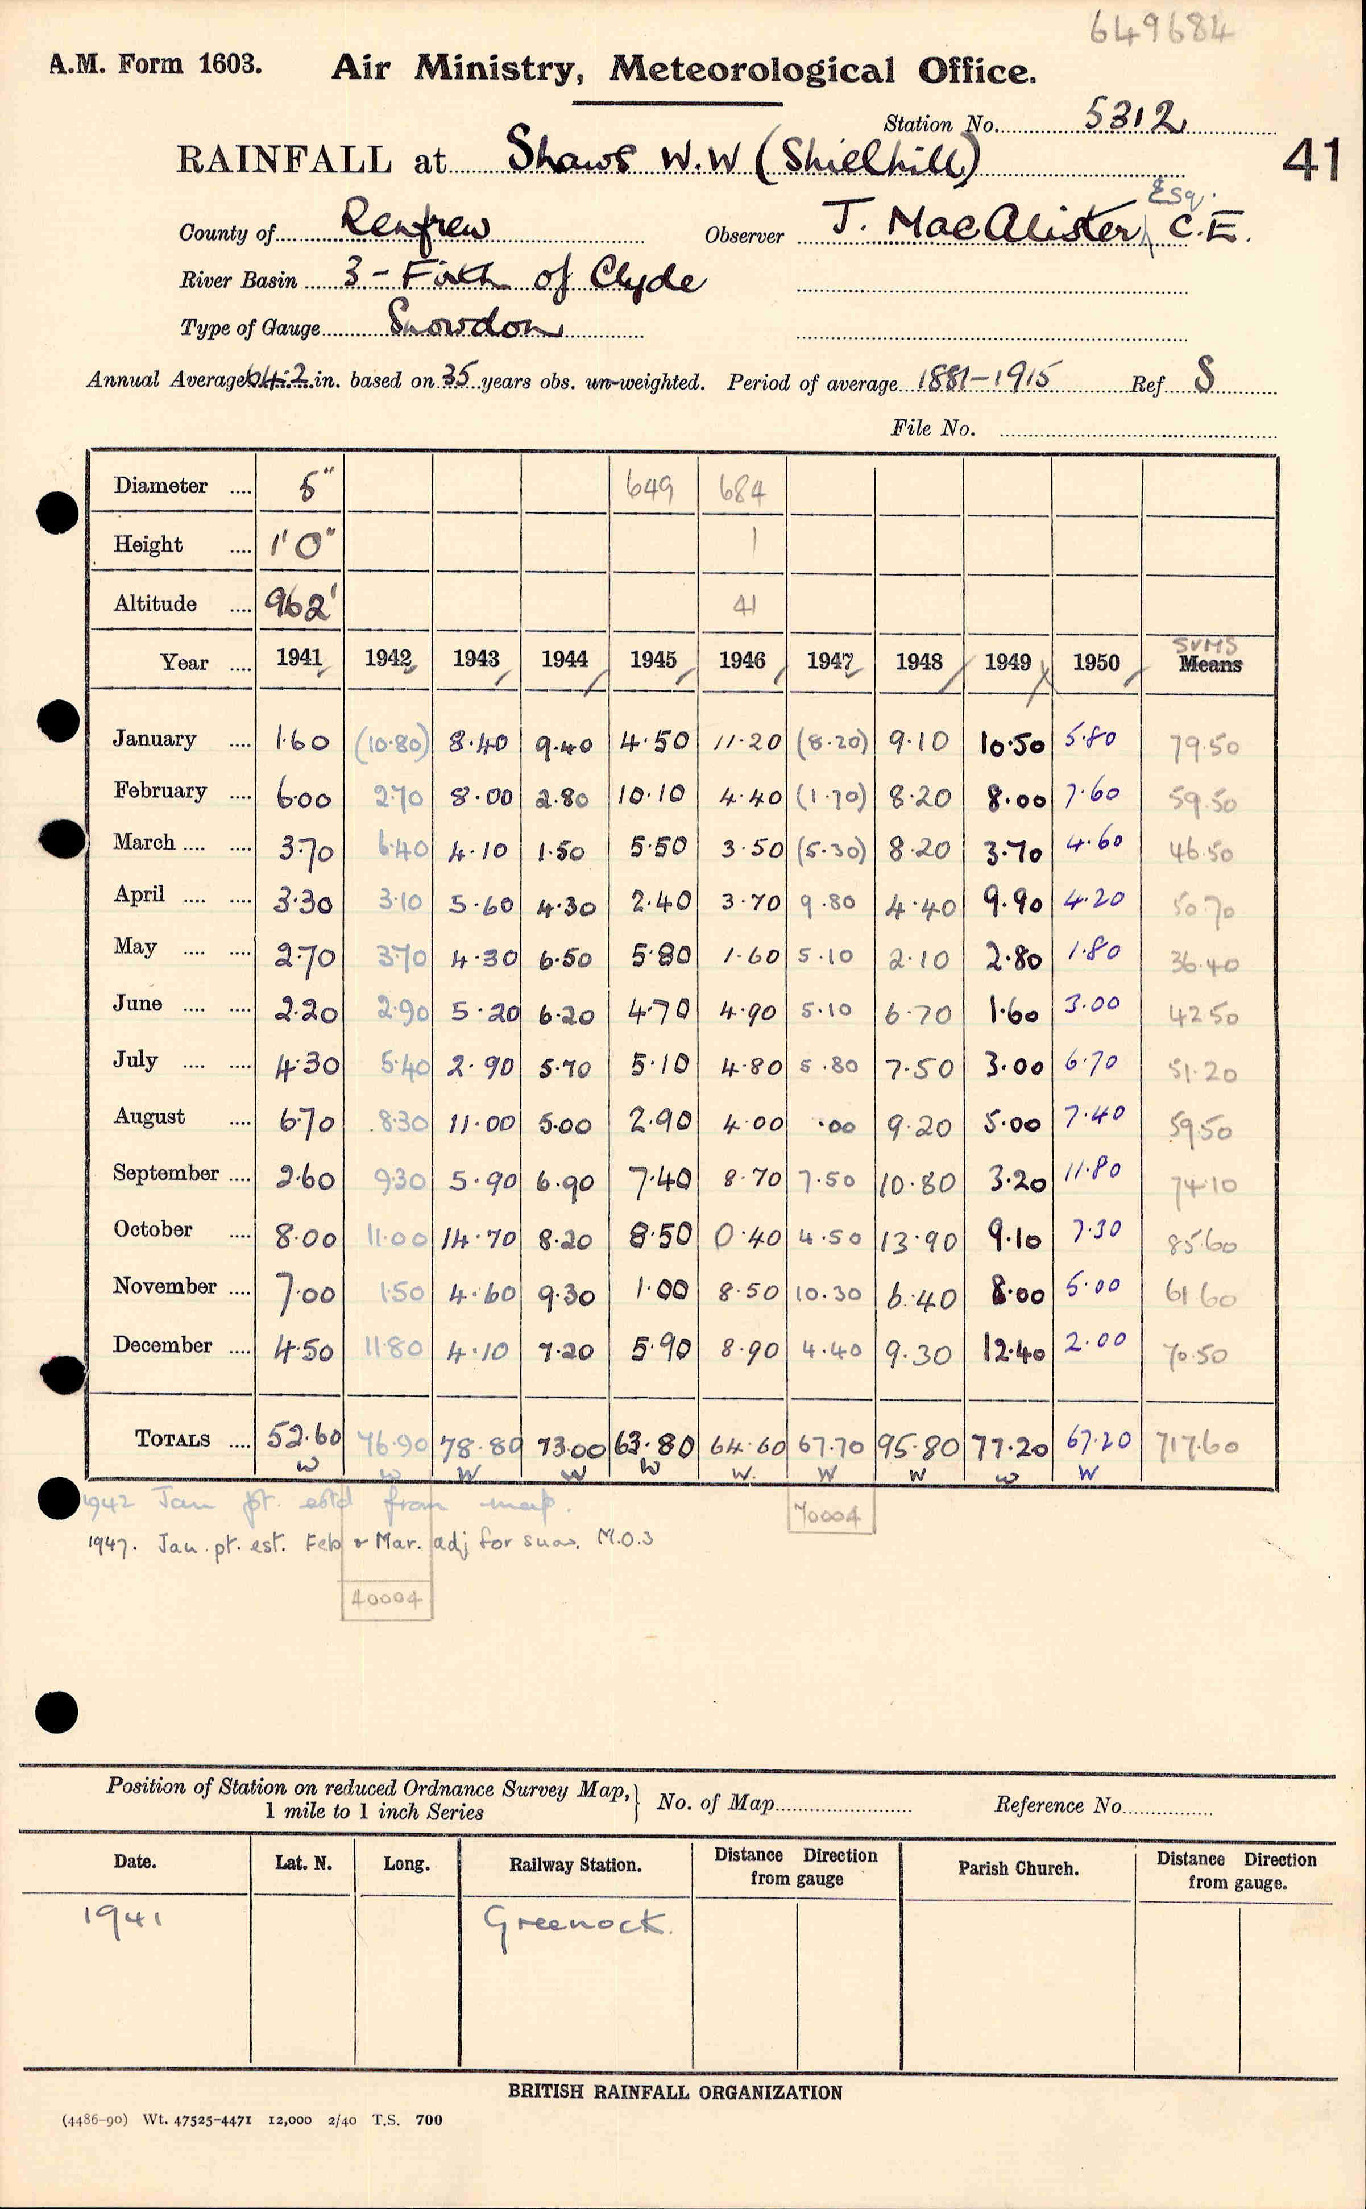 649684
A.M. Form 1603. Air Ministry, Meteorological Office.
Station No. 5312
RAINFALL at Shaws W.W (Shielhill) 41
Esq.
County of Renfrew Observer J. MacAlister, C.E.
River Basin 3 - Firth of Clyde
Type of Gauge Snowdon
Annual Average 64.2 in. based on 35 years obs. un-weighted. Period of average 1881-1915 Ref S
File No.
Diameter .... 5" 649 684
Height .... 1' 0" 1
Altitude .... 962' 41
SUMS
Year .... 1941 1942 1943 1944 1945 1946 1947 1948 1949 1950 Means
January .... 1.60 (10.80) 8.40 9.40 4.50 11.20 (8.20) 9.10 10.50 5.80 79.50
February .... 6.00 2.70 8.00 2.80 10.10 4.40 (1.70) 8.20 8.00 7.60 59.50
March .... .... 3.70 6.40 4.10 1.50 5.50 3.50 (5.30) 8.20 3.70 4.60 46.50
April .... .... 3.30 3.10 5.60 4.30 2.40 3.70 9.80 4.40 9.90 4.20 50.70
May .... .... 2.70 3.70 4.30 6.50 5.80 1.60 5.10 2.10 2.80 1.80 36.40
June .... .... 2.20 2.90 5.20 6.20 4.70 4.90 5.10 6.70 1.60 3.00 42.50
July .... .... 4.30 5.40 2.90 5.70 5.10 4.80 5.80 7.50 3.00 6.70 51.20
August .... 6.70 8.30 11.00 5.00 2.90 4.00 .00 9.20 5.00 7.40 59.50
September .... 2.60 9.30 5.90 6.90 7.40 8.70 7.50 10.80 3.20 11.80 74.10
October .... 8.00 11.00 14.70 8.20 8.50 0.40 4.50 13.90 9.10 7.30 85.60
November .... 7.00 1.50 4.60 9.30 1.00 8.50 10.30 6.40 8.00 5.00 61.60
December .... 4.50 11.80 4.10 7.20 5.90 8.90 4.40 9.30 12.40 2.00 70.50
TOTALS .... 52.60 76.90 78.80 73.00 63.80 64.60 67.70 95.80 77.20 67.20 717.60
W W W W W W. W W W W
1942 Jan pt. estd from map. 70004
1947. Jan. pt. est. Feb & Mar. adj for snow. M.O.3
40004
Position of Station on reduced Ordnance Survey Map, } No. of Map Reference No.
1 mile to 1 inch Series
Date. Lat. N. Long. Railway Station. Distance from gauge Direction Parish Church. Distance Direction from gauge.
1941 Greenock.
BRITISH RAINFALL ORGANIZATION
(4486-90) Wt. 47525-4471 12,000 2/40 T.S. 700